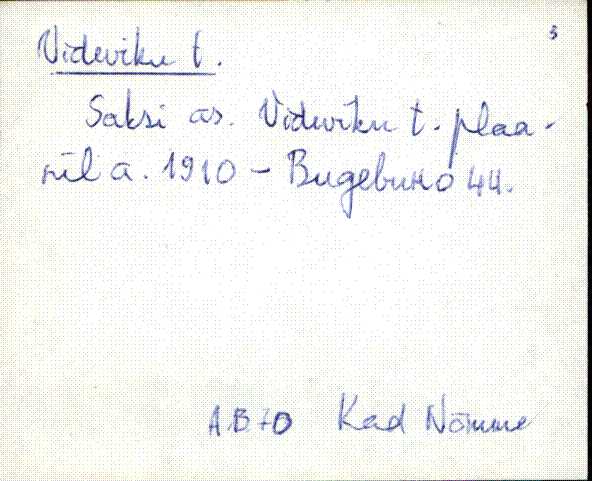 5
Videviku t.
Saksi as. Videviku t. plaa-
nil a. 1910 - Видевико 44.
AB70 Kad Nõmme